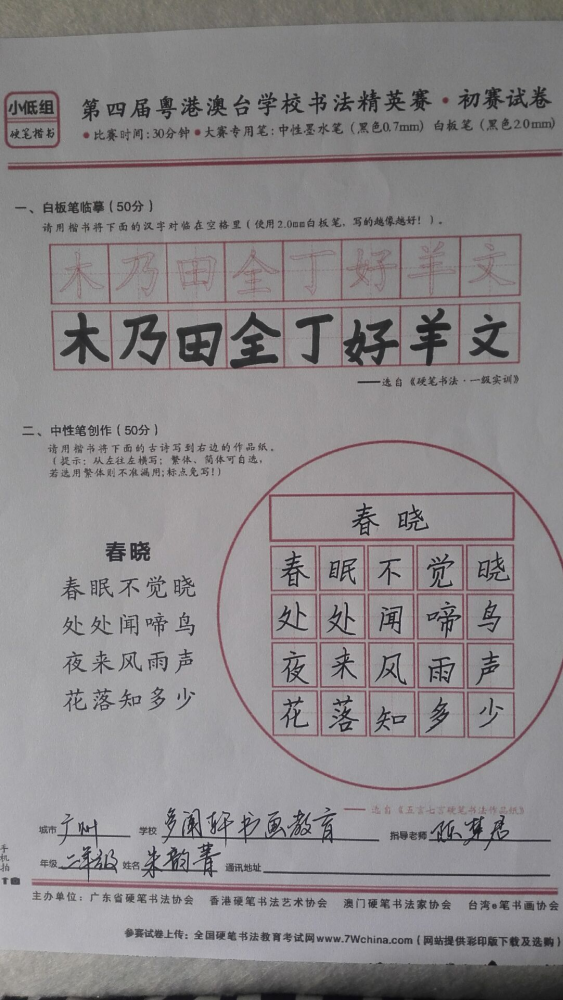 小低组
硬笔楷书
第四届粤港澳台学校书法精英赛·初赛试卷
●比赛时间:30分钟●大赛专用笔:中性墨水笔(黑色0.7mm) 白板笔(黑色2.0mm)
一、白板笔临摹(50分)
请用楷书将下面的汉字对临在空格里(使用2.0mm白板笔,写的越像越好!)。
木乃田全丁好羊文
木乃田全丁好羊文
——选自《硬笔书法·一级实训》
二、中性笔创作(50分)
请用楷书将下面的古诗写到右边的作品纸。
(提示:从左往右横写;繁体、简体可自选,
若选用繁体则不准漏用;标点免写!)
春晓
春眠不觉晓
处处闻啼鸟
夜来风雨声
花落知多少
春晓
春眠不觉晓
处处闻啼鸟
夜来风雨声
花落知多少
——选自《五言七言硬笔书法作品纸》
城市 广州 学校 多闻轩书画教育 指导老师 陈梦君
年级 二年级 姓名 朱韵菁 通讯地址
手机拍
主办单位:广东省硬笔书法协会 香港硬笔书法艺术协会 澳门硬笔书法家协会 台湾e笔书画协会
参赛试卷上传:全国硬笔书法教育考试网www.7Wchina.com(网站提供彩印版下载及选购)